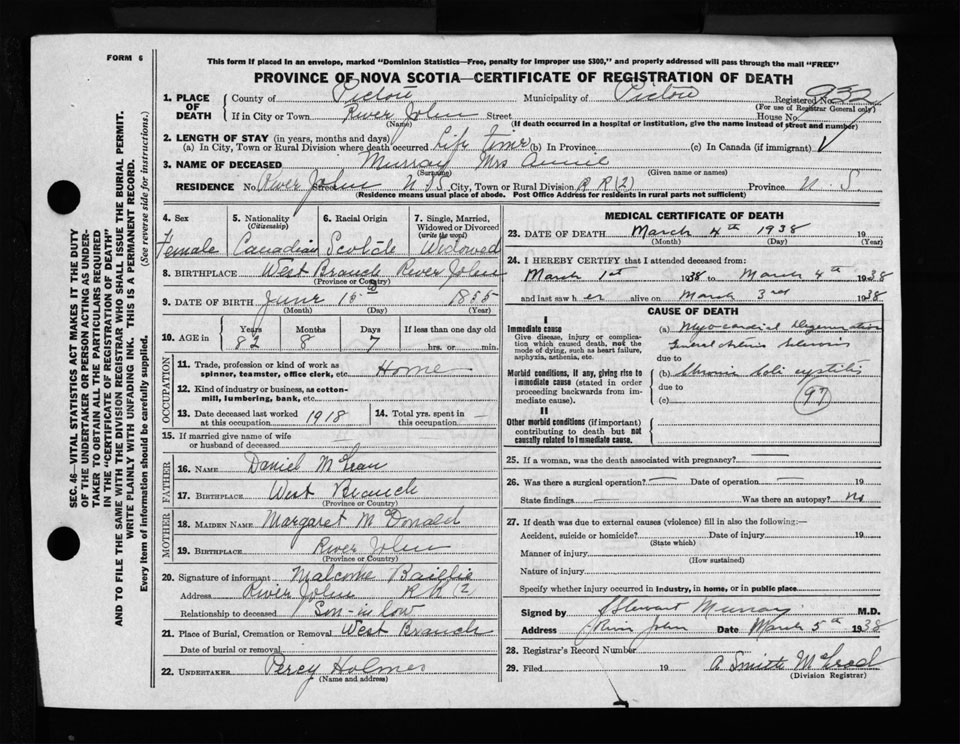 FORM 6
This form if placed in an envelope, marked "Dominion Statistics—Free, penalty for improper use $300," and properly addressed will pass through the mail "FREE"
PROVINCE OF NOVA SCOTIA—CERTIFICATE OF REGISTRATION OF DEATH
SEC. 46—VITAL STATISTICS ACT MAKES IT THE DUTY
OF THE UNDERTAKER OR PERSON ACTING AS UNDER-
TAKER TO OBTAIN ALL THE PARTICULARS REQUIRED
IN THE "CERTIFICATE OF REGISTRATION OF DEATH"
AND TO FILE THE SAME WITH THE DIVISION REGISTRAR WHO SHALL ISSUE THE BURIAL PERMIT.
WRITE PLAINLY WITH UNFADING INK. THIS IS A PERMANENT RECORD.
Every item of information should be carefully supplied. (See reverse side for instructions.)
1. PLACE OF DEATH County of Pictou Municipality of Pictou Registered No. 932
(For use of Registrar General only)
If in City or Town River John Street House No.
(Name) (If death occurred in a hospital or institution, give the name instead of street and number)
2. LENGTH OF STAY (in years, months and days)
(a) In City, Town or Rural Division where death occurred Life Time (b) In Province (c) In Canada (if immigrant)
3. NAME OF DECEASED Murray Mrs Annie
(Surname) (Given name or names)
RESIDENCE No. River John Street N S City, Town or Rural Division R R (2) Province N. S.
(Residence means usual place of abode. Post Office Address for residents in rural parts not sufficient)
4. Sex
Female
5. Nationality
(Citizenship)
Canadian
6. Racial Origin
7. Single, Married,
Widowed or Divorced
(write the word)
Widowed
8. BIRTHPLACE West Branch River John
(Province or Country)
9. DATE OF BIRTH June 15 1855
(Month) (Day) (Year)
10. AGE in
Years Months Days If less than one day old
82 8 7 hrs. or min.
OCCUPATION
11. Trade, profession or kind of work as
spinner, teamster, office clerk, etc. Home
12. Kind of industry or business, as cotton-
mill, lumbering, bank, etc.
13. Date deceased last worked
at this occupation 1918
14. Total yrs. spent in
this occupation —
15. If married give name of wife
or husband of deceased —
FATHER
16. NAME Daniel McLean
17. BIRTHPLACE West Branch
(Province or Country)
MOTHER
18. MAIDEN NAME Margaret McDonald
19. BIRTHPLACE River John
(Province or Country)
20. Signature of informant Malcome Baillie
Address River John R R (2
Relationship to deceased Son-in low
21. Place of Burial, Cremation or Removal West Branch
Date of burial or removal
22. UNDERTAKER Percy Holmes
(Name and address)
MEDICAL CERTIFICATE OF DEATH
23. DATE OF DEATH March 4th 1938 19
(Month) (Day) (Year)
24. I HEREBY CERTIFY that I attended deceased from:
March 1st 1938 to March 4th 1938
and last saw her alive on March 3rd 1938
CAUSE OF DEATH
I
Immediate cause
Give disease, injury or complica-
tion which caused death, not the
mode of dying, such as heart failure,
asphyxia, asthenia, etc.
Morbid conditions, if any, giving rise to
immediate cause (stated in order
proceeding backwards from im-
mediate cause).
II
Other morbid conditions (if important)
contributing to death but not
causally related to immediate cause.
(a) Myocardial Degeneration
General Sclerosis
due to
(b) Chronic
due to
(c)
97
25. If a woman, was the death associated with pregnancy? —
26. Was there a surgical operation? — Date of operation — 19
State findings — Was there an autopsy? No
27. If death was due to external causes (violence) fill in also the following:—
Accident, suicide or homicide? Date of injury 19
(State which)
Manner of injury
(How sustained)
Nature of injury
Specify whether injury occurred in industry, in home, or in public place
Signed by Stewart Murray M.D.
Address River John Date March 5th 1938
28. Registrar's Record Number
29. Filed 19 A Smith McLeod
(Division Registrar)